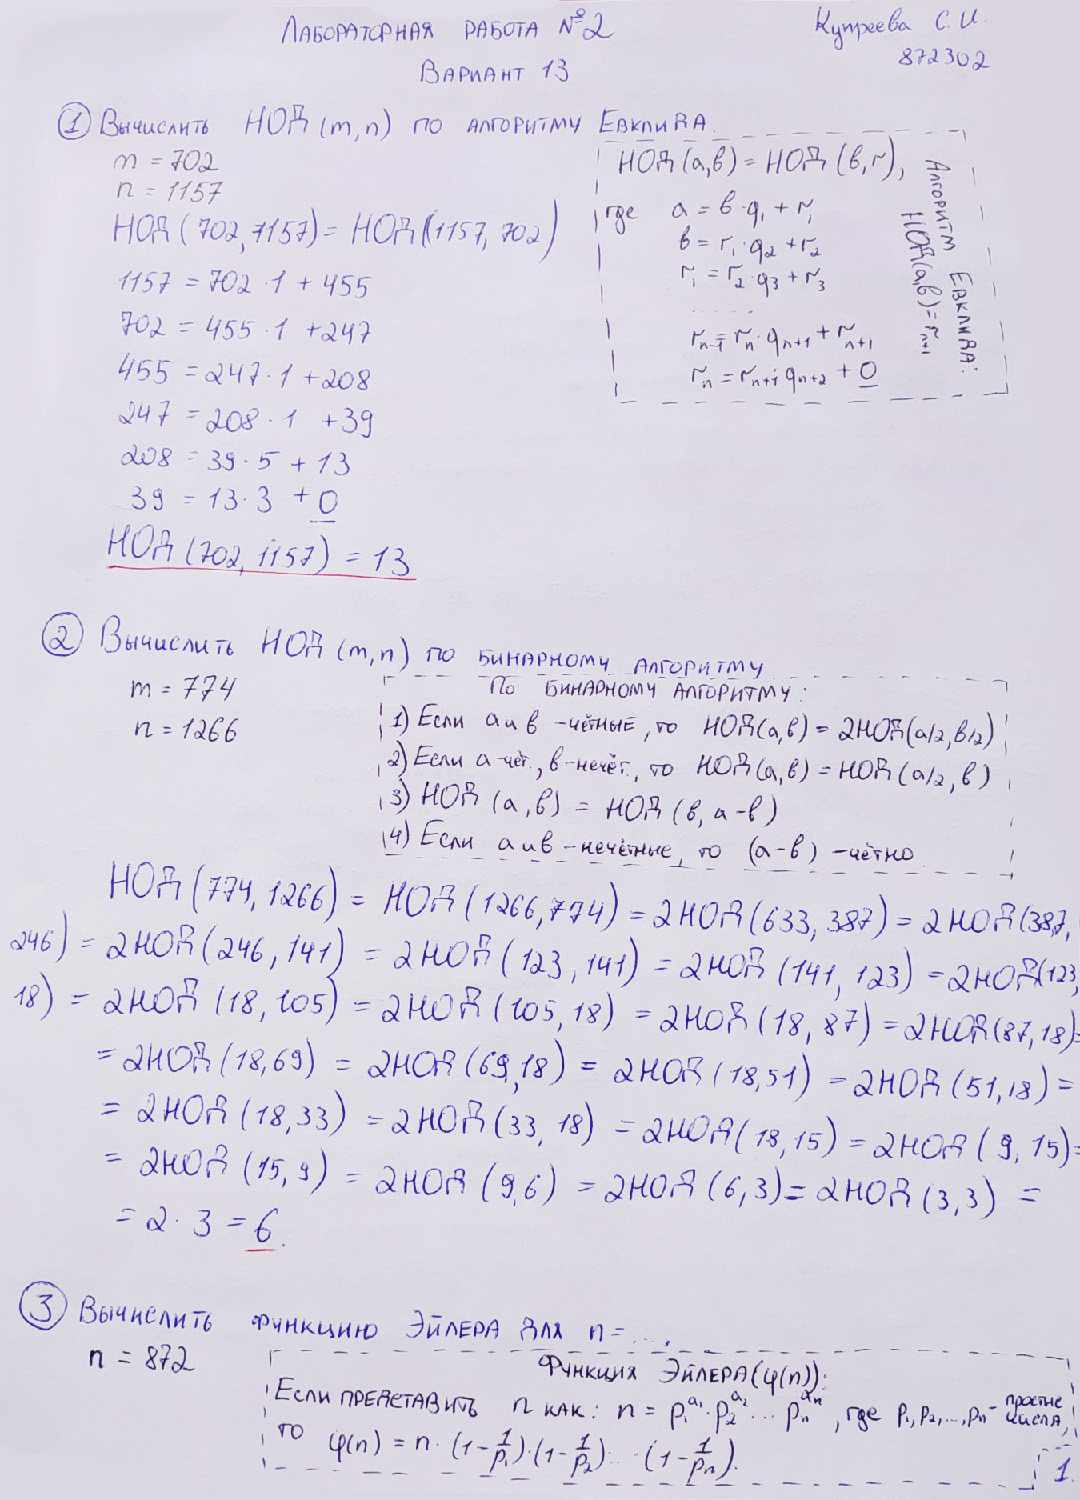 Лабораторная работа №2
Купреева С.И.
872302
Вариант 13
① Вычислить НОД (m,n) по алгоритму Евклида.
m = 702
n = 1157
НОД (702,1157) = НОД (1157,702)
1157 = 702·1 + 455
702 = 455·1 + 247
455 = 247·1 + 208
247 = 208·1 + 39
208 = 39·5 + 13
39 = 13·3 + 0
НОД (702,1157) = 13
НОД (a,в) = НОД (в,r),
где a = в·q₁ + r₁
в = r₁·q₂ + r₂
r₁ = r₂·q₃ + r₃
.....
rₙ₋₁ = rₙ·qₙ₊₁ + rₙ₊₁
rₙ = rₙ₊₁·qₙ₊₂ + 0
Алгоритм Евклида:
НОД(a,в) = rₙ₊₁
② Вычислить НОД (m,n) по бинарному алгоритму
m = 774
n = 1266
По бинарному алгоритму:
1) Если a и в - чётные, то НОД(a,в) = 2НОД(a/2, в/2)
2) Если a - чёт., в - нечёт., то НОД(a,в) = НОД(a/2, в)
3) НОД (a,в) = НОД (в, a-в)
4) Если a и в - нечётные, то (a-в) - чётно
НОД (774,1266) = НОД (1266,774) = 2НОД (633,387) = 2НОД (387,
246) = 2НОД (246,141) = 2НОД (123,141) = 2НОД (141,123) = 2НОД (123,
18) = 2НОД (18,105) = 2НОД (105,18) = 2НОД (18,87) = 2НОД (87,18) =
= 2НОД (18,69) = 2НОД (69,18) = 2НОД (18,51) = 2НОД (51,18) =
= 2НОД (18,33) = 2НОД (33,18) = 2НОД (18,15) = 2НОД (9,15) =
= 2НОД (15,9) = 2НОД (9,6) = 2НОД (6,3) = 2НОД (3,3) =
= 2·3 = 6.
③ Вычислить функцию Эйлера для n = ....
n = 872
Функция Эйлера (φ(n)):
Если представить n как: n = p₁^a₁·p₂^a₂ ... pₙ^aₙ, где p₁, p₂,..., pₙ - простые числа,
то φ(n) = n·(1-1/p₁)·(1-1/p₂)·...·(1-1/pₙ).
1.